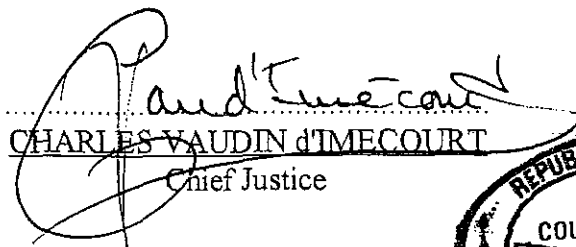 Vaud'Imécourt
CHARLES VAUDIN d'IMECOURT
Chief Justice
REPUB
COU